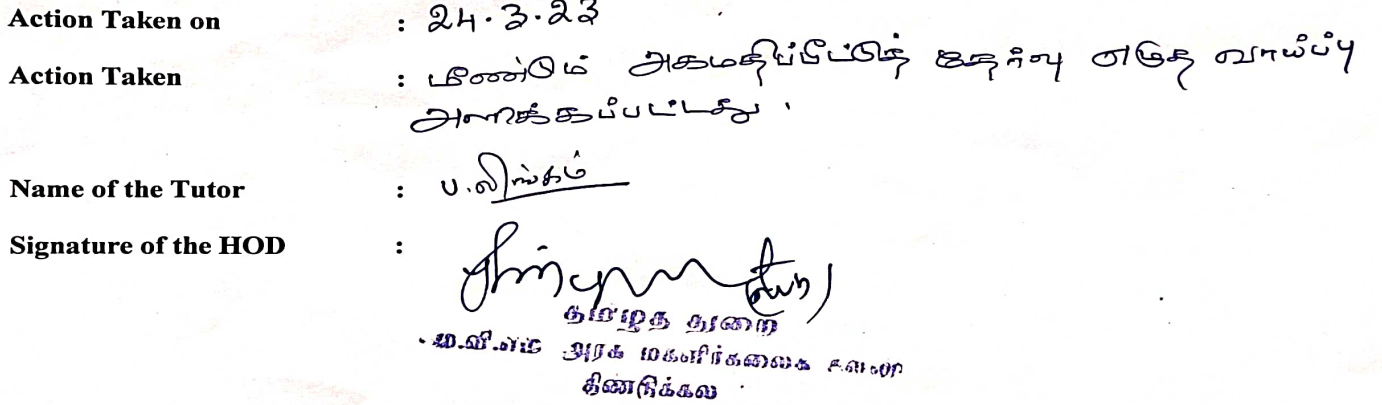 Action Taken on : 24.3.23
Action Taken : மீண்டும் அகமதிப்பீட்டுத் தேர்வு எழுத வாய்ப்பு
அளிக்கப்பட்டது.
Name of the Tutor : ப.லிங்கம்
Signature of the HOD :
தமிழத் துறை
ம.வி.எம் அரசு மகளிர்கலைக்
திண்டுக்கல